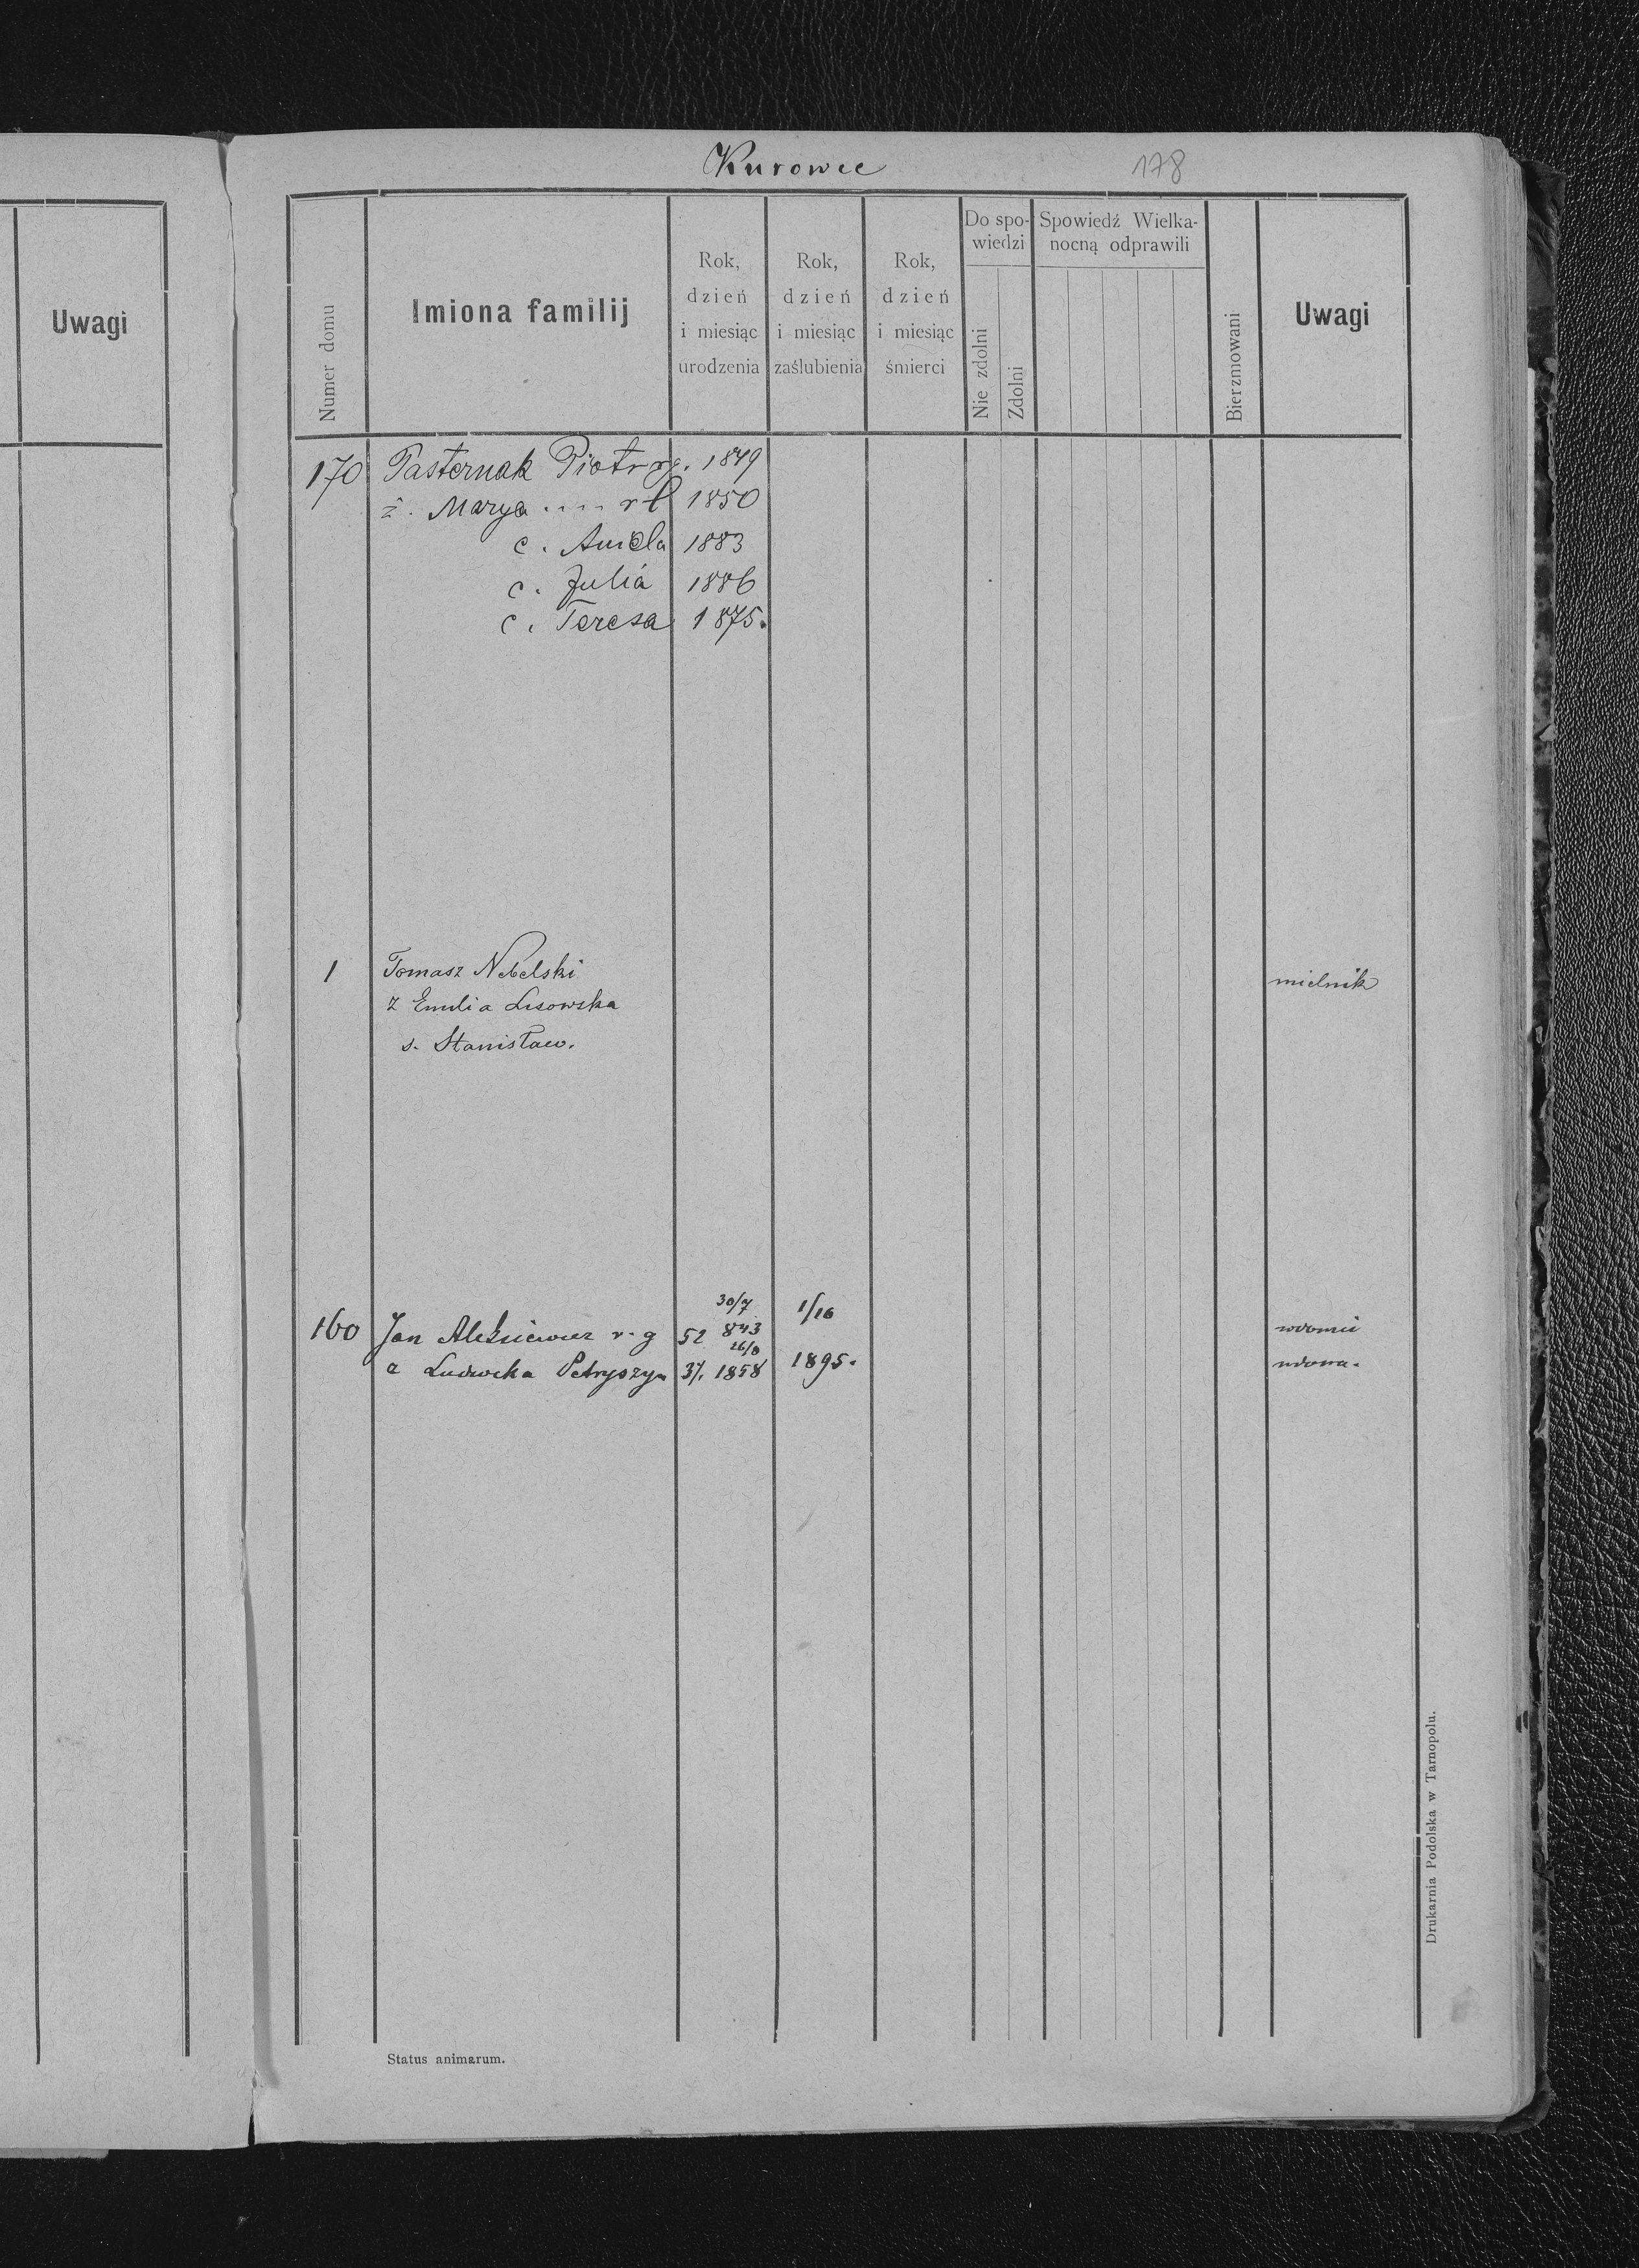 Uwagi
Kurowce 178
Numer domu
Imiona familij
Rok,
dzień
i miesiąc
urodzenia
Rok,
dzień
i miesiąc
zaślubienia
Rok,
dzień
i miesiąc
śmierci
Do spo-
wiedzi
Nie zdolni
Zdolni
Spowiedź Wielka-
nocną odprawili
Bierzmowani
Uwagi
170 Pasternak Piotr rg. 1849
ż. Marya .... rł 1850
c. Aniela 1883
c. Julia 1886
c. Teresa 1875.
1 Tomasz Nebelski mielnik
z Emilia Lisowska
s. Stanisław.
30/7 1/10
160 Jan Aleksiewicz r. g 52 843
26/8
z Ludwika Petryszyn 37. 1858 1895. wdowa.
Status animarum.
Drukarnia Podolska w Tarnopolu.